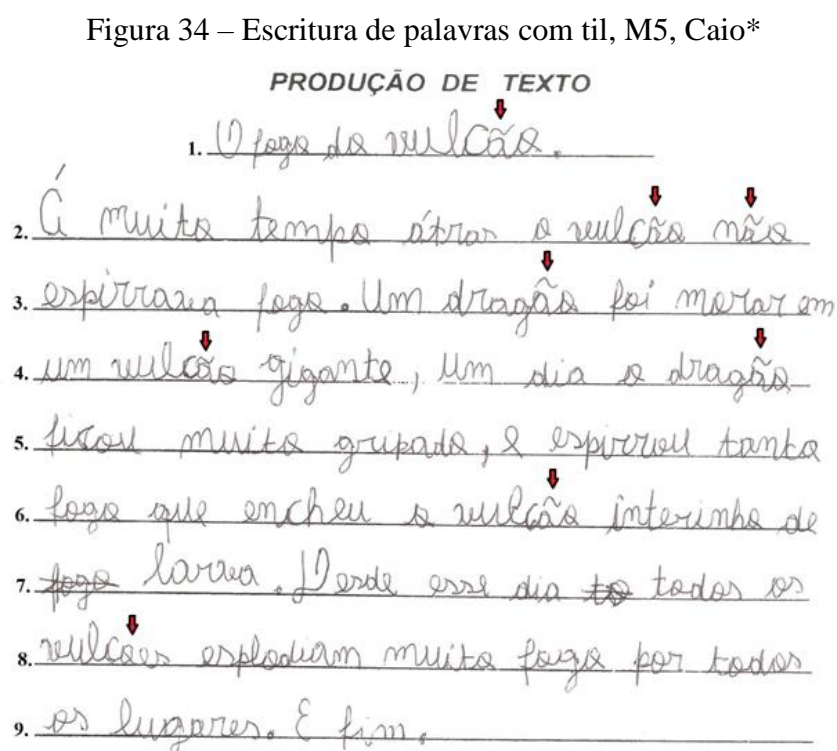 Figura 34 – Escritura de palavras com til, M5, Caio*
PRODUÇÃO DE TEXTO
1. O fogo do vulcão.
2. Á muito tempo átras o vulcão não
3. espirrava fogo. Um dragão foi morar em
4. um vulcão gigante, Um dia o dragão
5. ficou muito gripado, e espirrou tanto
6. fogo que encheu o vulcão interinho de
7. fogo larva. Desde esse dia to todos os
8. vulcões esplodiam muito fogo por todos
9. os lugares. E fim.